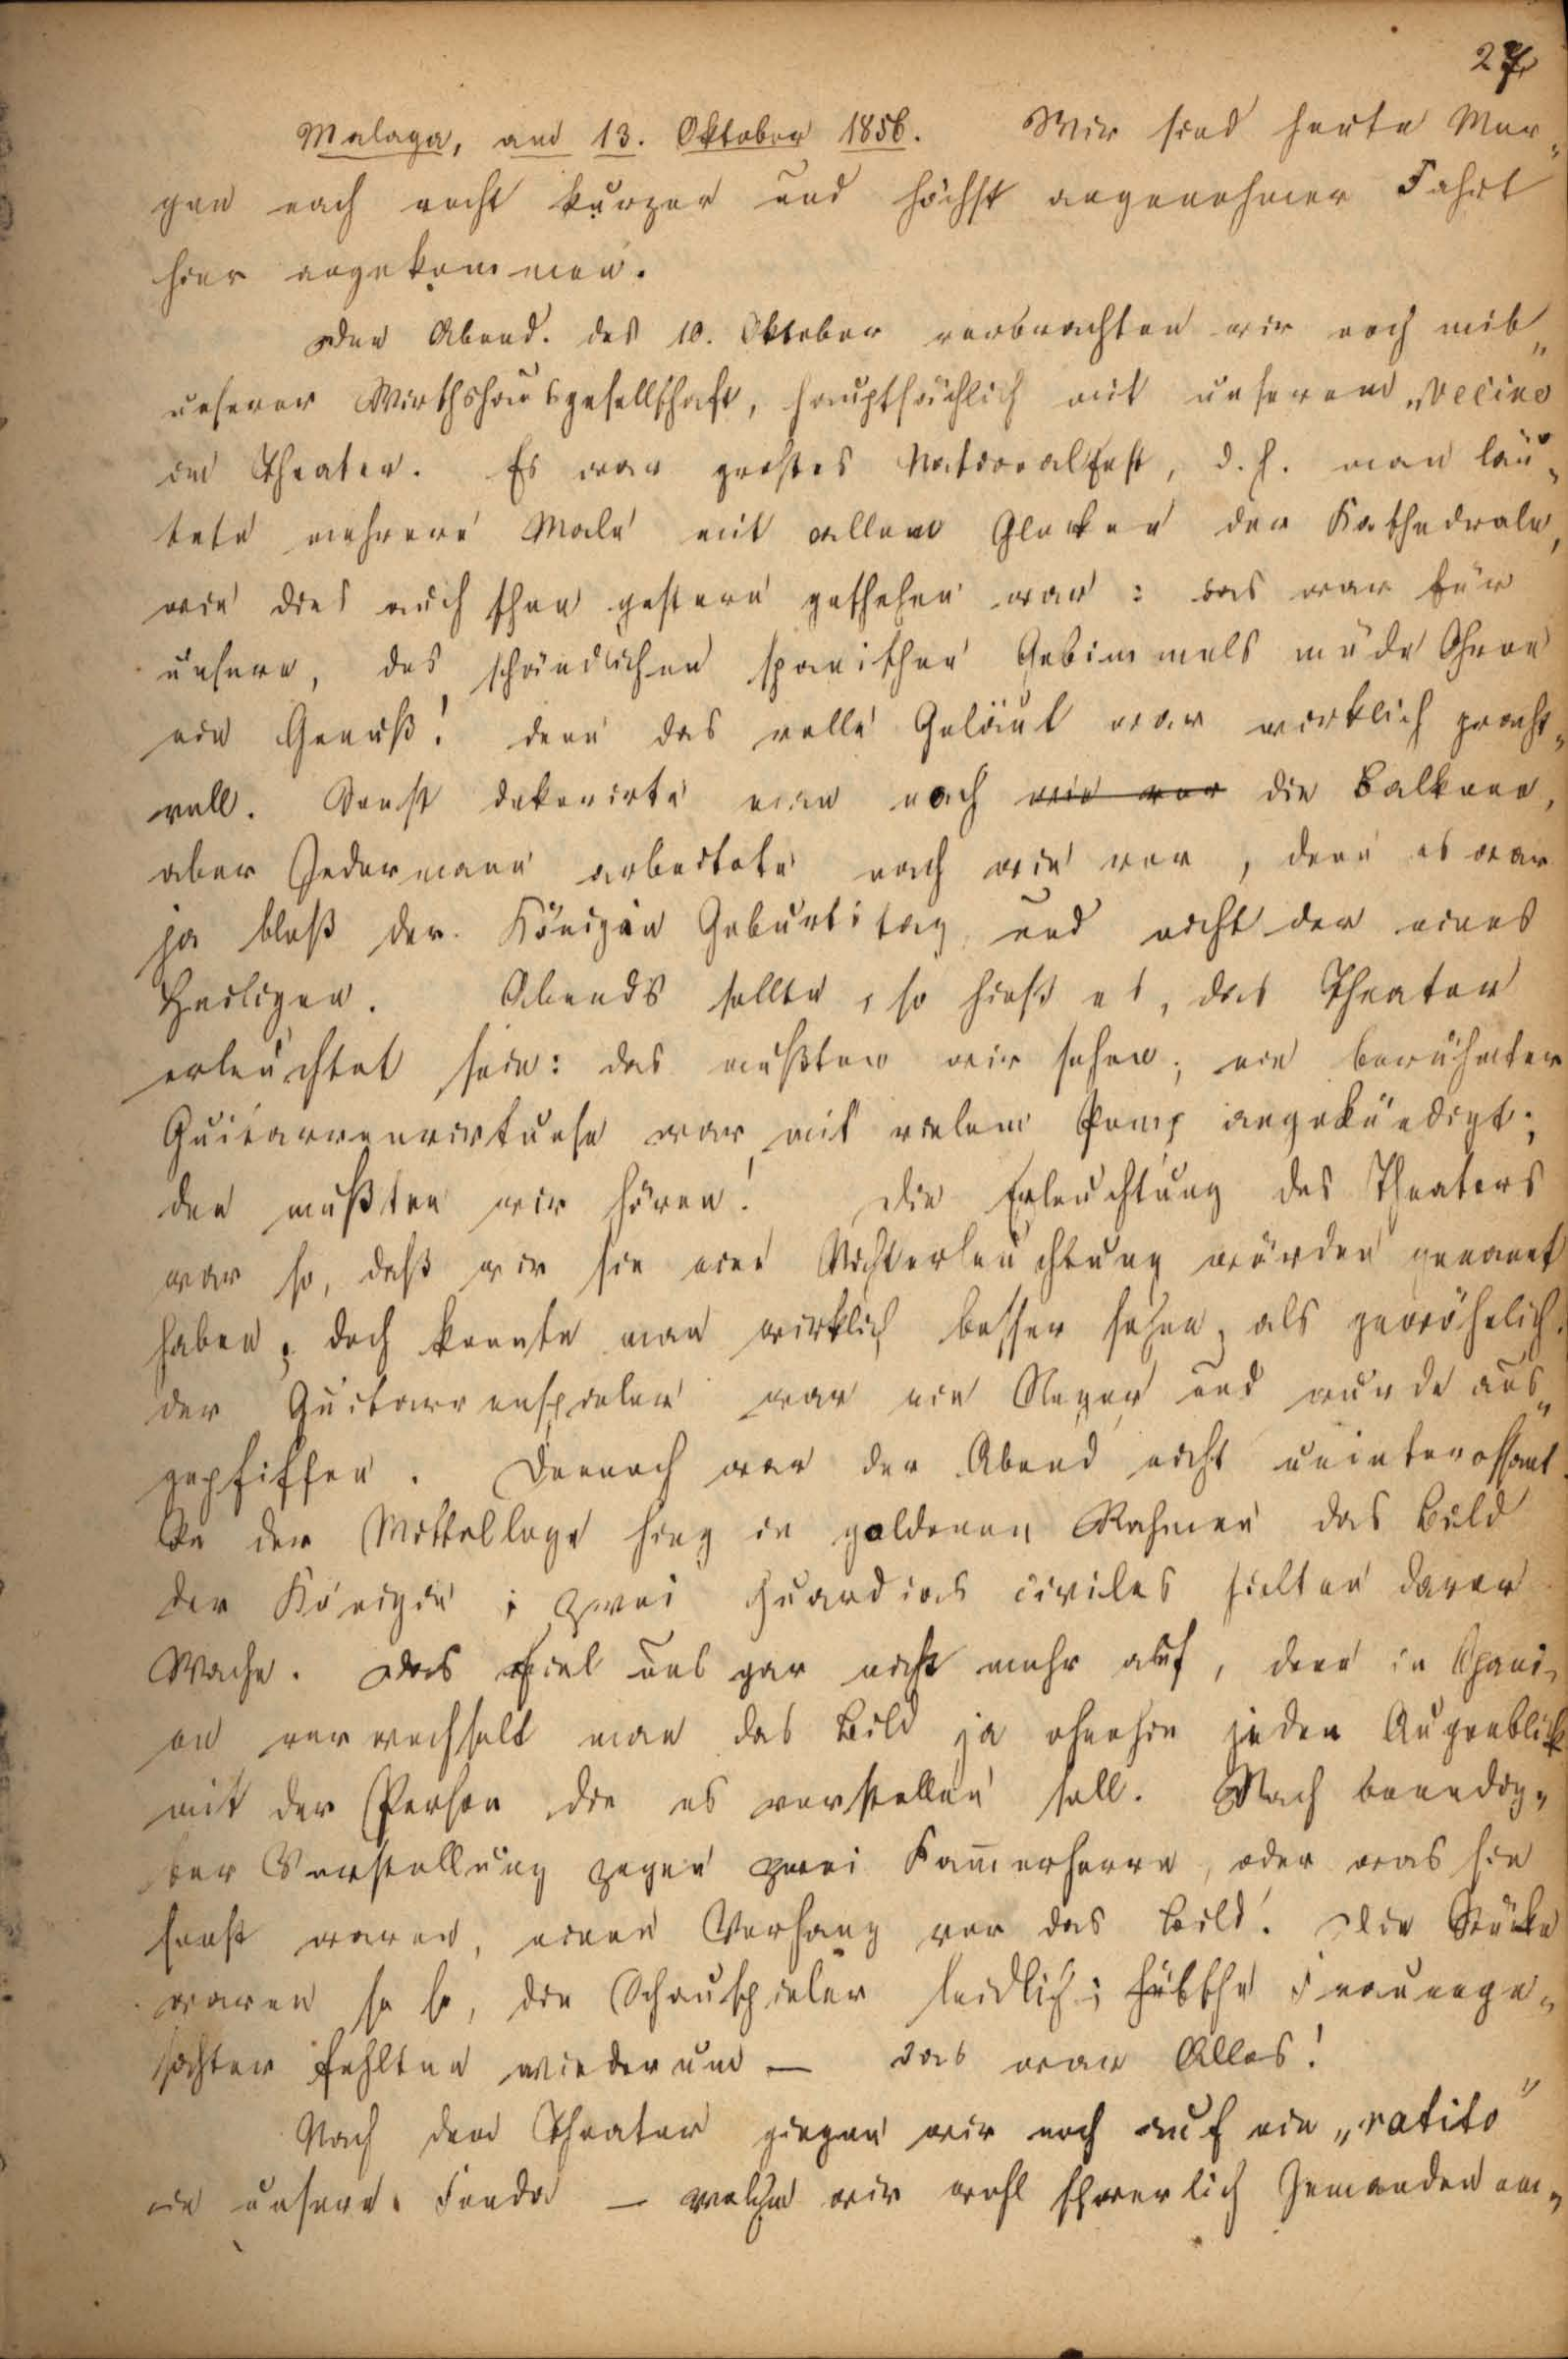 27
Malaga, am 13. Oktober 1856. Wir sind heute Mor„
gen nach recht kurzer und höchst angenehmer Fahrt
hier angekommen.
Den Abend des 10. Oktober verbrachten wir noch mit
unserer Wirthshausgesellschaft, hauptsächlich mit unserem „vecino
im Theater. Es war großes Nationalfest, d. h. man läu„
tete mehrere Male mit allen Glocken der Kathedrale,
wie dies auch schon gestern geschehen war: das war für
unsere, des schändlichen spanischen Gebimmels müde Ohren
ein Genuß! denn das volle Geläut war wirklich pracht„
voll. Sonst dekorirte man noch wie vor die Balkone,
aber Jedermann arbeitete nach wie vor, denn es war
ja bloß der Königin Geburtstag und nicht der eines
Heiligen. Abends sollte, so hieß es, das Theater
erleuchtet sein: das mußten wir sehen; ein berühmter
Guitarrenvirtuose war mit vielem Pomp angekündigt;
den mußten wir hören! Die Erleuchtung des Theaters
war so, daß wir sie eine Nichterleuchtung würden genannt
haben; doch konnte man wirklich besser sehen, als gewöhnlich.
der Guitarrenspieler war ein Neger und wurde aus„
gepfiffen. Dennoch war der Abend nicht uninteressant.
In der Mittelloge hing in goldenen Rahmen das Bild
der Königin; zwei Guardias civiles hielten davor
Wache. Das fiel uns gar nicht mehr auf, denn in Spani„
en verwechselt man das Bild ja ohnehin jeden Augenblick
mit der Person die es vorstellen soll. Nach beendig„
ter Vorstellung zogen zwei Kam̅erherrn, oder was sie
sonst waren, einen Vorhang vor das Bild. Die Stücke
waren so so, die Schauspieler leidlich; hübsche Frauenge„
sichter fehlten wiederum — das war Alles!
Nach dem Theater gingen wir noch auf ein „ratito“
in unsere Fonda — welche wir wohl schwerlich Jemanden em„